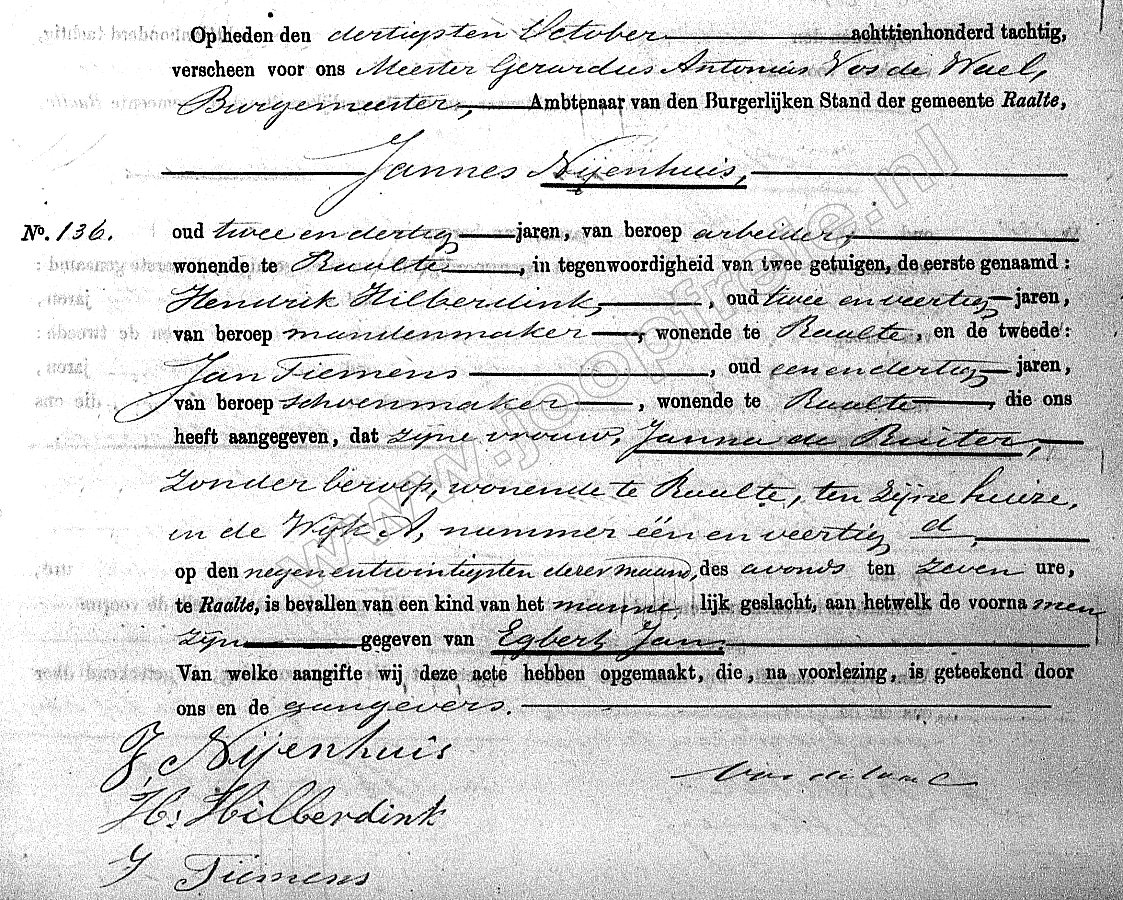 Op heden den dertigsten October achttienhonderd tachtig,
verscheen voor ons Meester Gerardus Antonius Vos de Wael,
Burgemeester, Ambtenaar van den Burgerlijken Stand der gemeente Raalte,
Jannes Nijenhuis,
No. 136. oud twee en dertig jaren, van beroep arbeider,
wonende te Raalte, in tegenwoordigheid van twee getuigen, de eerste genaamd:
Hendrik Hilberdink, oud twee en veertig jaren,
van beroep mandenmaker, wonende te Raalte, en de tweede:
Jan Tiemens, oud een en dertig jaren,
van beroep schoenmaker, wonende te Raalte, die ons
heeft aangegeven, dat zijne vrouw, Janna de Ruiter,
zonder beroep, wonende te Raalte, ten zijne huize,
in de Wijk A, nummer één en veertig d,
op den negenentwintigsten dezer maand, des avonds ten zeven ure,
te Raalte, is bevallen van een kind van het manne lijk geslacht, aan hetwelk de voorna men
zijn gegeven van Egbert Jan.
Van welke aangifte wij deze acte hebben opgemaakt, die, na voorlezing, is geteekend door
ons en de aangevers.
J. Nijenhuis
H. Hilberdink
J Tiemens
www.joopfrie.nl